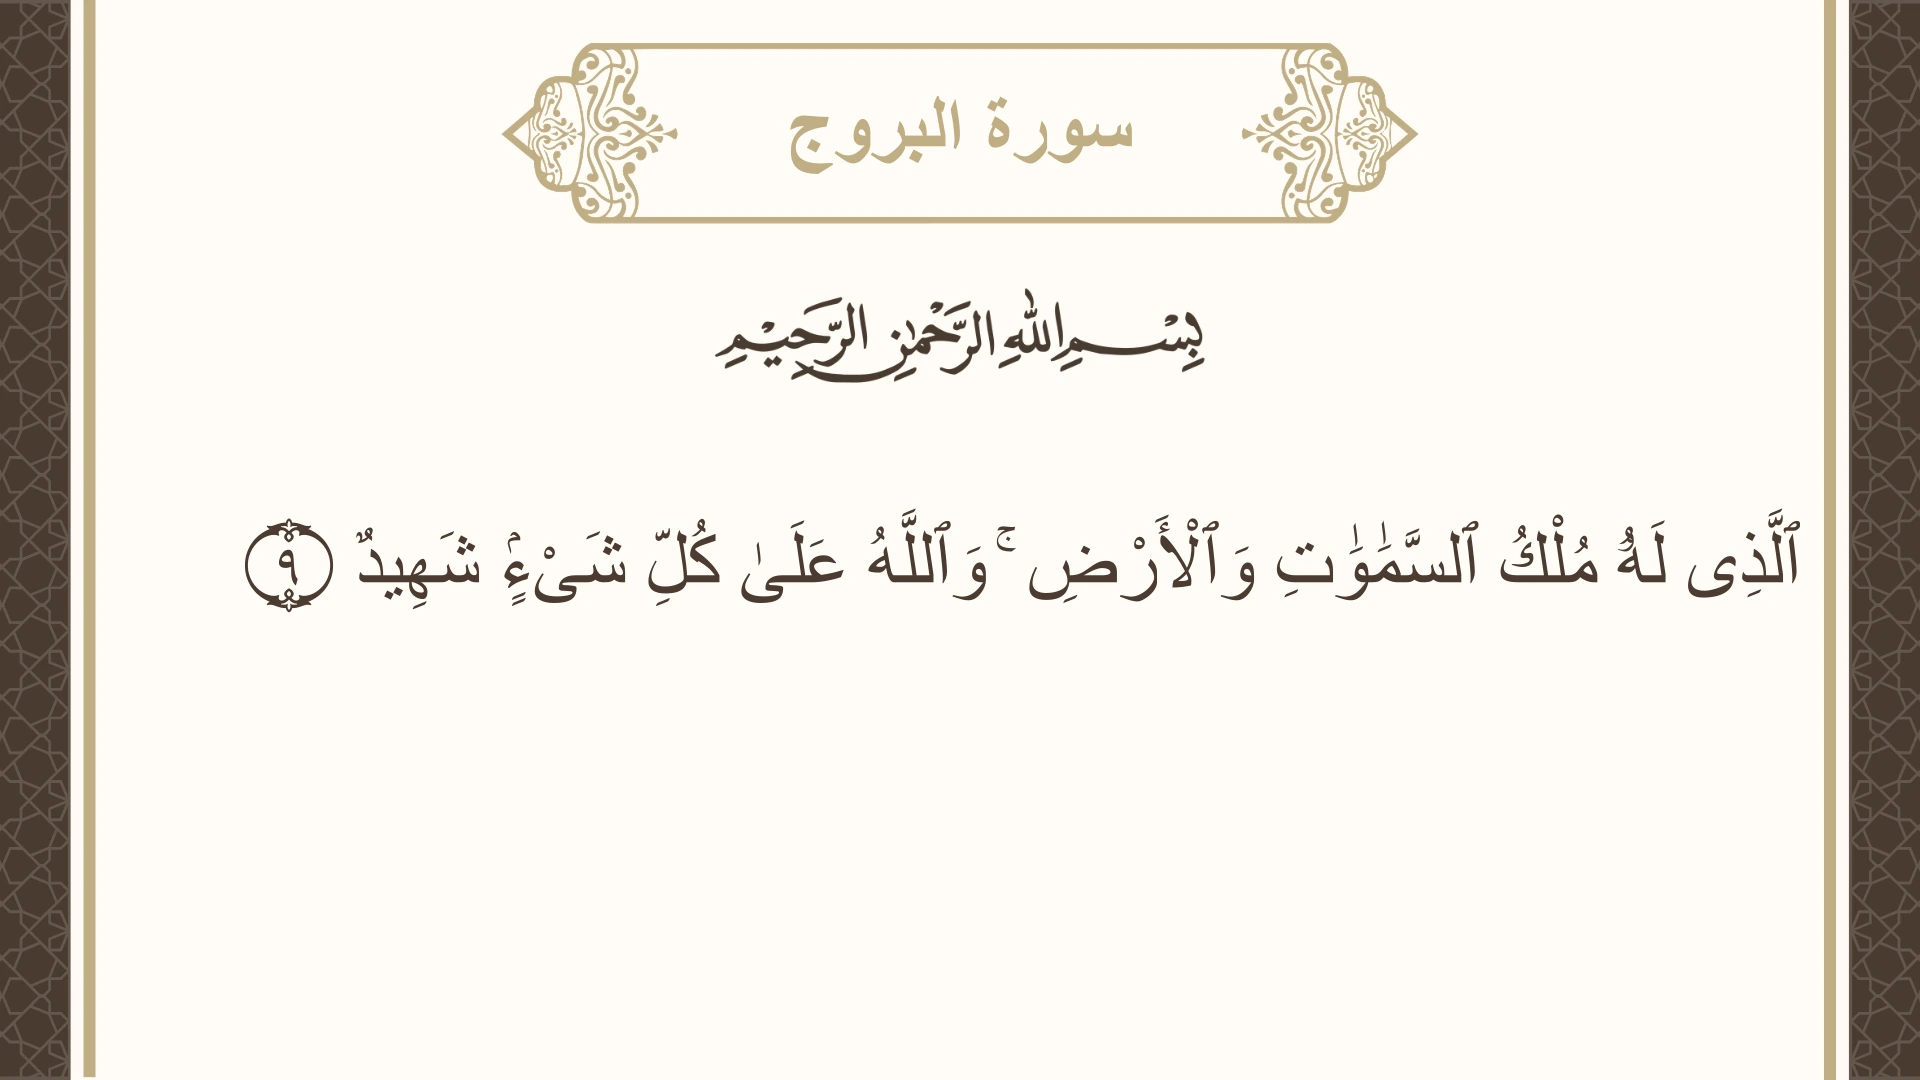 سورة البروج
بِسْمِ اللهِ الرَّحْمٰنِ الرَّحِيْمِ
ٱلَّذِى لَهُۥ مُلْكُ ٱلسَّمَـٰوَٰتِ وَٱلْأَرْضِ ۚ وَٱللَّهُ عَلَىٰ كُلِّ شَىْءٍۢ شَهِيدٌ ٩